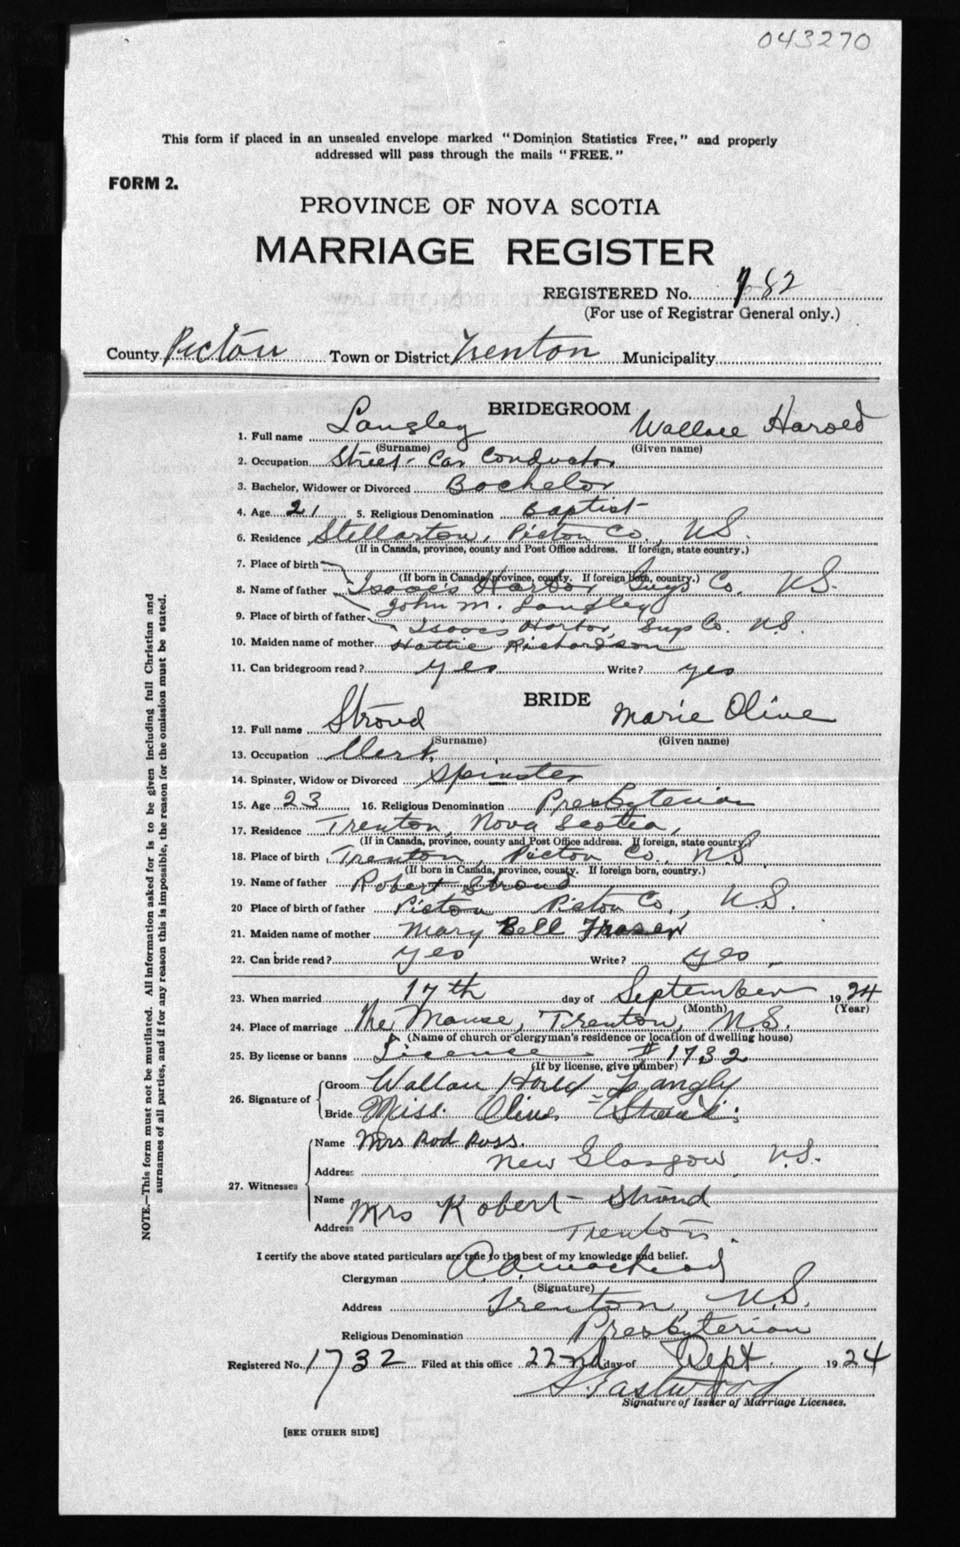 043270
This form if placed in an unsealed envelope marked "Dominion Statistics Free," and properly
addressed will pass through the mails "FREE."
FORM 2.
PROVINCE OF NOVA SCOTIA
MARRIAGE REGISTER
REGISTERED No. 782
(For use of Registrar General only.)
County Pictou Town or District Trenton Municipality
BRIDEGROOM
1. Full name Langley Wallace Harold
(Surname) (Given name)
2. Occupation Street Car Conductor
3. Bachelor, Widower or Divorced Bachelor
4. Age 21 5. Religious Denomination Baptist
6. Residence Stellarton, Pictou Co., N.S.
(If in Canada, province, county and Post Office address. If foreign, state country.)
7. Place of birth
(If born in Canada, province, county. If foreign born, country.)
Isaac's Harbor Guys Co. N.S.
8. Name of father John M. Langley
9. Place of birth of father Isaac's Harbor, Guys Co. N.S.
10. Maiden name of mother Hattie Richardson
11. Can bridegroom read? yes Write? yes
BRIDE
12. Full name Stroud Marie Olive
(Surname) (Given name)
13. Occupation Clerk
14. Spinster, Widow or Divorced Spinster
15. Age 23 16. Religious Denomination Presbyterian
17. Residence Trenton, Nova Scotia,
(If in Canada, province, county and Post Office address. If foreign, state country.)
18. Place of birth Trenton, Pictou Co., N.S.
(If born in Canada, province, county. If foreign born, country.)
19. Name of father Robert Stroud
20 Place of birth of father Pictou Pictou Co., N.S.
21. Maiden name of mother Mary Bell Fraser
22. Can bride read? yes Write? yes.
23. When married 17th day of September 1924
(Month) (Year)
24. Place of marriage The Manse, Trenton, N.S.
(Name of church or clergyman's residence or location of dwelling house)
25. By license or banns License - #1732
(If by license, give number)
26. Signature of
Groom Wallace Harold Langly
Bride Miss. Olive Stroud.
27. Witnesses
Name Mrs Rod Ross.
Address New Glasgow, N.S.
Name Mrs Robert Stroud
Address Trenton.
I certify the above stated particulars are true to the best of my knowledge and belief.
Clergyman
(Signature)
Address Trenton, N.S.
Religious Denomination Presbyterian
Registered No. 1732 Filed at this office 22nd day of Sept. 1924
Eastwood
Signature of Issuer of Marriage Licenses.
[SEE OTHER SIDE]
NOTE.—This form must not be mutilated. All information asked for is to be given including full Christian and
surnames of all parties, and if for any reason this is impossible, the reason for the omission must be stated.